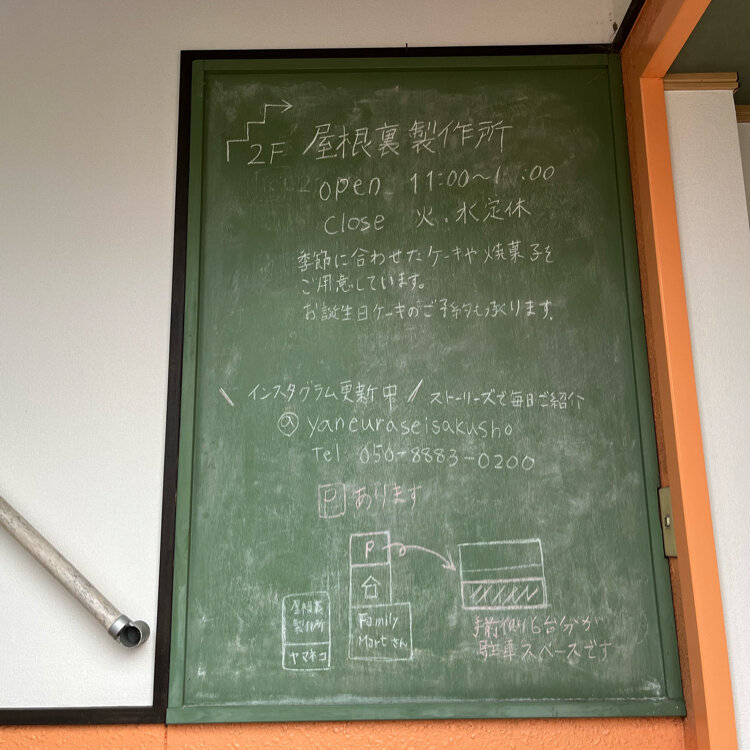 2F 屋根裏製作所
open 11:00〜1 :00
close 火.水定休
季節に合わせたケーキや焼菓子を
ご用意しています。
お誕生日ケーキのご予約も承ります.
\ インスタグラム更新中 / ストーリーズで毎日ご紹介
@ yaneuraseisakusho
Tel 050-8883-0200
P あります
P
屋根裏
製作所
ヤマネコ
Family
Martさん
手前側6台分が
駐車スペースです